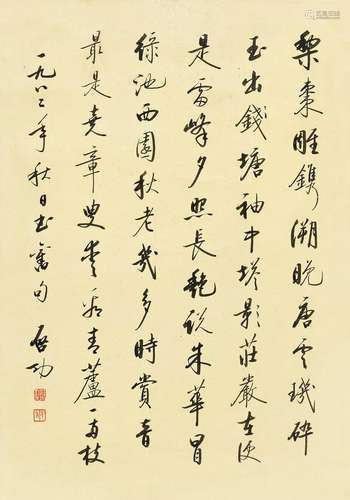 棃棗雕鐫溯晚唐零璣碎
玉出錢塘袖中塔影莊嚴在便
是雷峰夕照長艷説朱華冒
綠池西園秋老幾多時賞音
最是堯章叟愛看青蘆一兩枝
一九八二年秋日書舊句 啟功